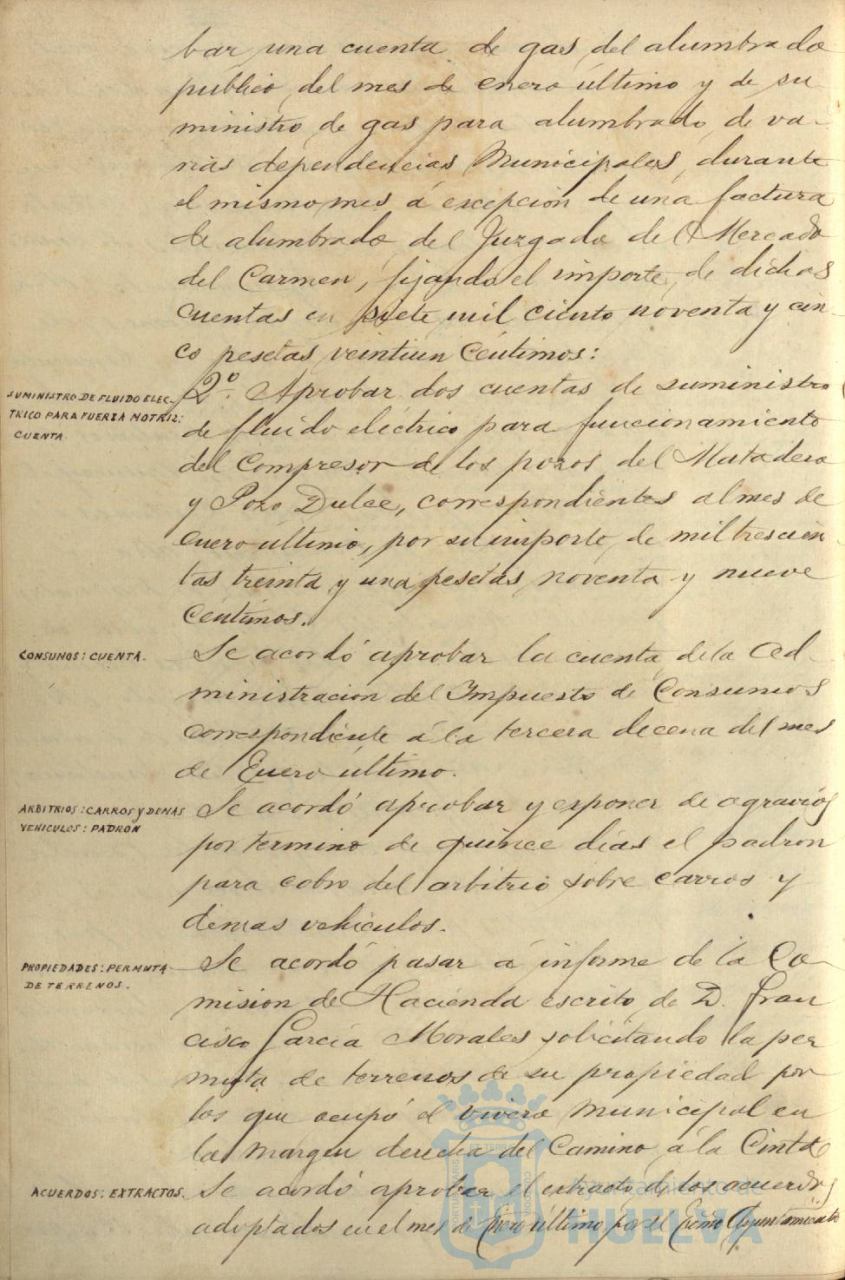 bar una cuenta de gas del alumbrado
publico, del mes de enero último y de su
ministro de gas para alumbrado de va-
rias dependencias Municipales, durante
el mismo mes á excepción de una factura
de alumbrado del Juzgado del Mercado
del Carmen, fijando el importe, de dichas
cuentas en siete mil ciento noventa y cin-
co pesetas veintiun Céntimos:
SUMINISTRO DE FLUIDO ELEC-
TRICO PARA FUERZA MOTRIZ:
CUENTA
2º. Aprobar dos cuentas de suministro
de fluido eléctrico para funcionamiento
del Compresor de los pozos del Matadero
y Pozo Dulce, correspondientes al mes de
enero último, por su importe, de mil trescien
tas treinta y una pesetas, noventa y nueve
Céntimos.
CONSUMOS: CUENTA.
Se acordó aprobar la cuenta de la Ad-
ministracion del Impuesto de Consumos
correspondiente á la tercera decena del mes
de Enero último.
ARBITRIOS: CARROS Y DEMAS
VEHICULOS: PADRON
Se acordó aprobar y esponer de agravios
por termino de quince días el padron
para cobro del arbitrio sobre carros y
demas vehiculos.
PROPIEDADES: PERMUTA
DE TERRENOS.
Se acordó pasar á informe de la Co-
mision de Hacienda escrito de D. Fran
cisco García Morales solicitando la per
muta de terrenos de su propiedad por
los que ocupó el vivero municipal en
la margen derecha del Camino á la Cinta
ACUERDOS: EXTRACTOS.
Se acordó aprobar el extracto de los acuerdos
adoptados en el mes de Enero último, por el Exmo Ayuntamiento
Ayuntamiento de
HUELVA